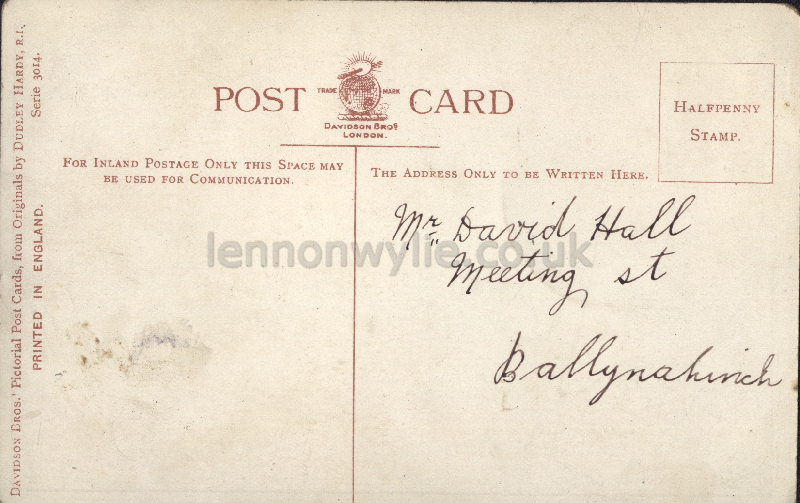 DAVIDSON BROS.' Pictorial Post Cards, from Originals by DUDLEY HARDY, R.I.
Serie 3014.
PRINTED IN ENGLAND.
POST CARD
TRADE MARK
DAVIDSON BROS.
LONDON.
HALFPENNY
STAMP.
FOR INLAND POSTAGE ONLY THIS SPACE MAY
BE USED FOR COMMUNICATION.
THE ADDRESS ONLY TO BE WRITTEN HERE.
Mr David Hall
lennonwylie.co.uk
Meeting st
Ballynahinch